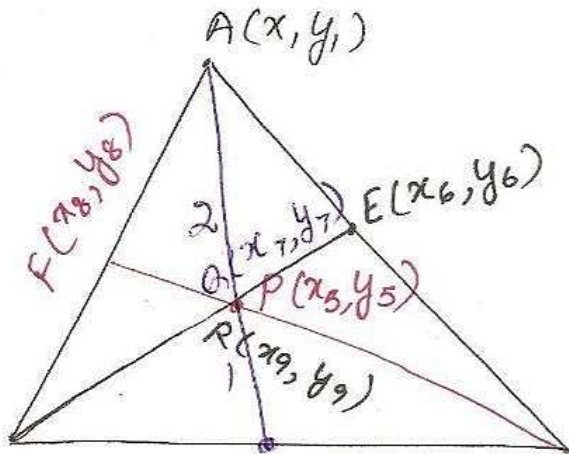 A(x, y₁)
F(x₈, y₈)
E(x₆, y₆)
2
Q(x₇, y₇)
P(x₅, y₅)
R(x₉, y₉)
1